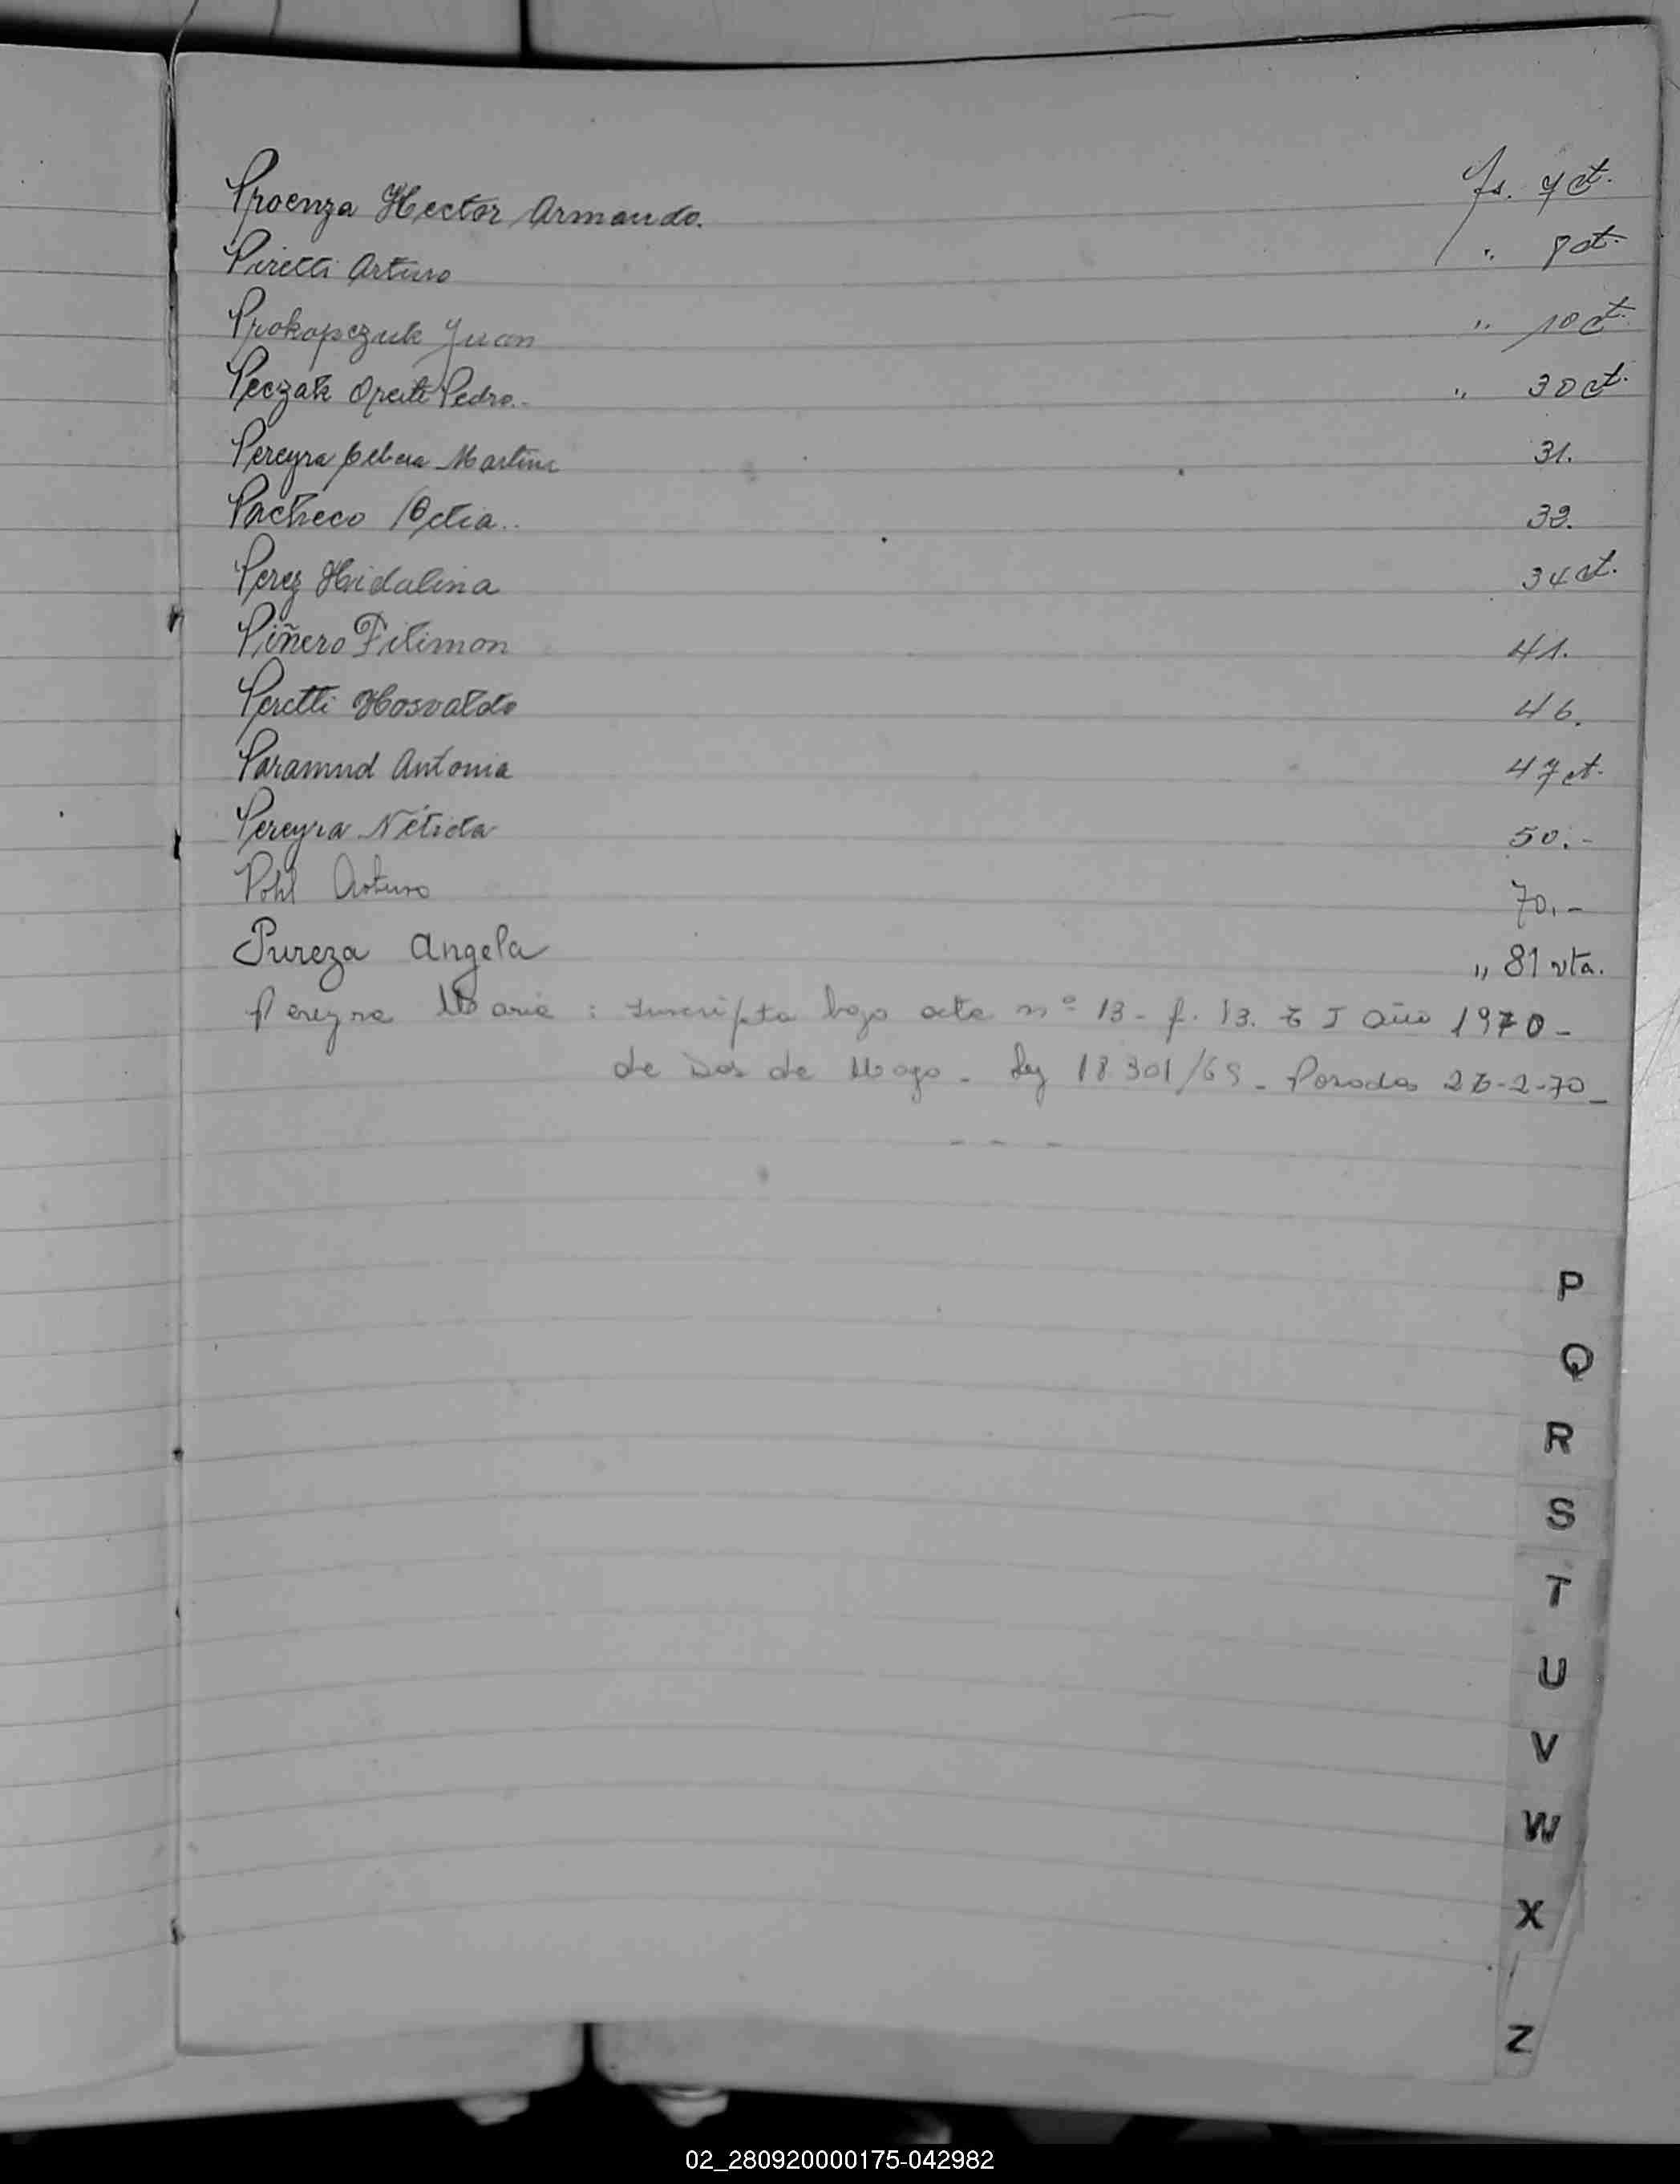 Proenza Hector Armando. fs. 7 ct.
Piretti Arturo " 8 ct.
Prokopczuk Juan " 10 ct.
Peczak Pedro.- " 30 ct.
Pereyra Martina 31.
Pacheco 32.
Perez Hidalina 34 ct.
Piñero Filimon 41.
Peretti Hosvaldo 46.
Paramud Antonia 47 ct.
Pereyra Nélida 50.-
Pohl Arturo 70.-
Pureza Angela " 81 vta.
Pereyra Maria : Inscripta bajo acta nº 13 - f. 13. T I Año 1970 -
de Dos de Mayo - Ley 18301/69 - Posadas 26-2-70 -
- - -
P
Q
R
S
T
U
V
W
X
Z
02_280920000175-042982